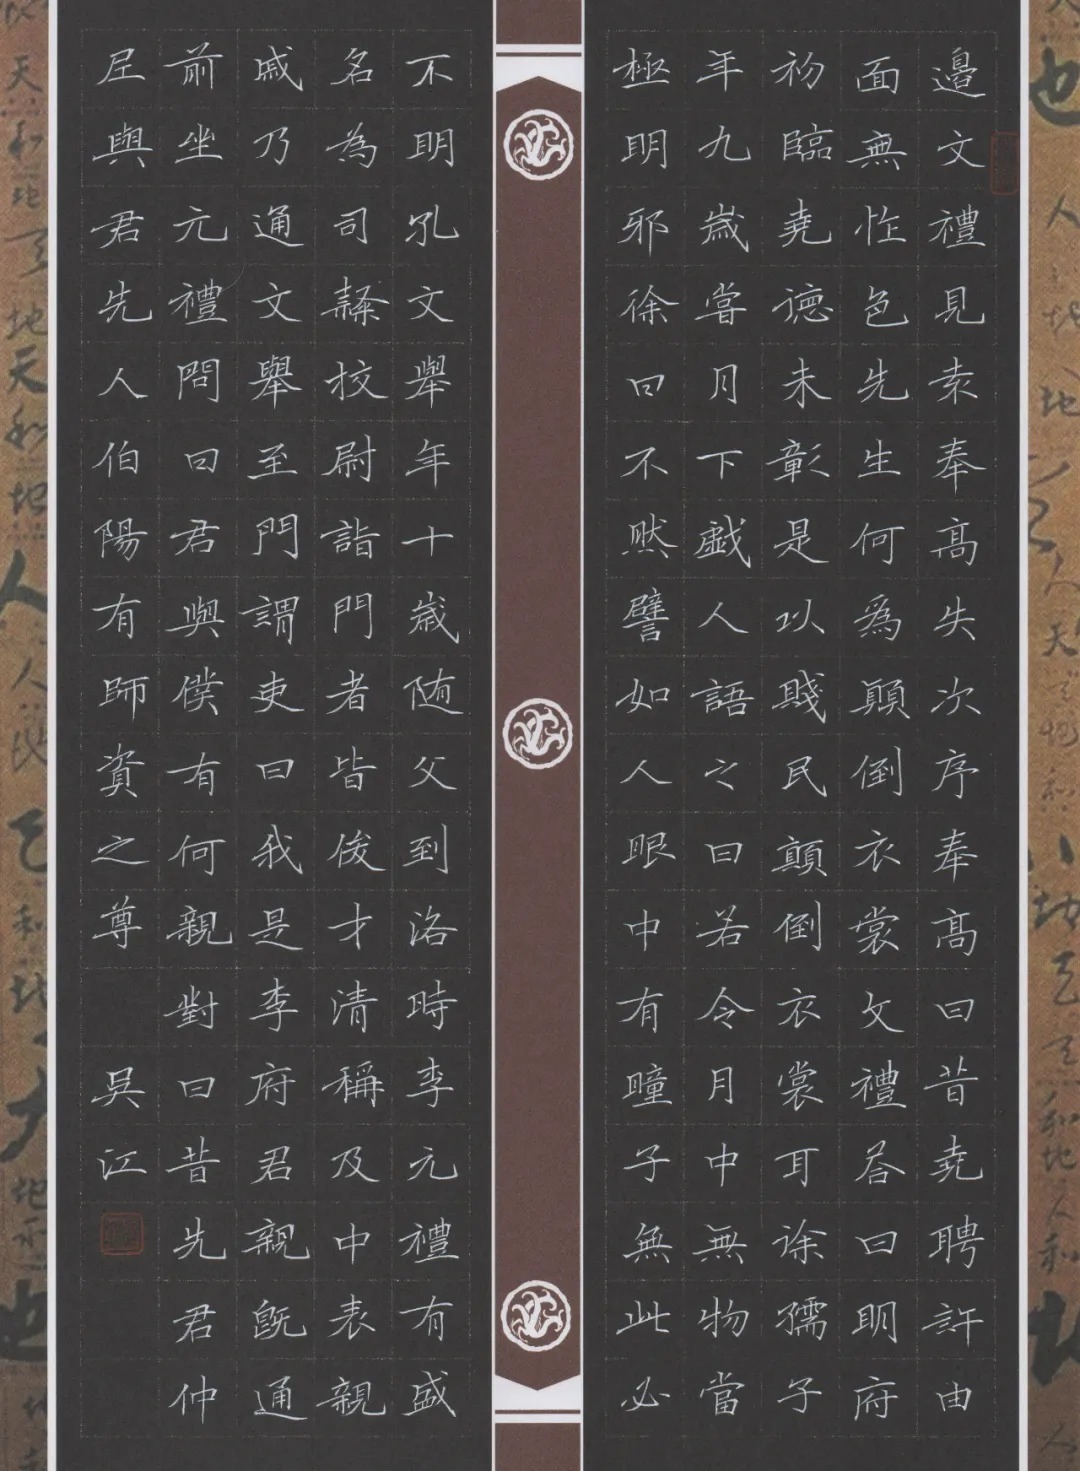 邊文禮見袁奉高失次序奉高曰昔堯聘許由
面無怍色先生何為顛倒衣裳文禮答曰明府
初臨堯德未彰是以賤民顛倒衣裳耳徐孺子
年九歲嘗月下戲人語之曰若令月中無物當
極明邪徐曰不然譬如人眼中有瞳子無此必
不明孔文舉年十歲随父到洛時李元禮有盛
名為司隸校尉詣門者皆俊才清稱及中表親
戚乃通文舉至門謂吏曰我是李府君親既通
前坐元禮問曰君與僕有何親對曰昔先君仲
尼與君先人伯陽有師資之尊 吳江